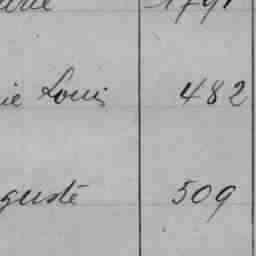 1791
ie Louis 482
guste 509